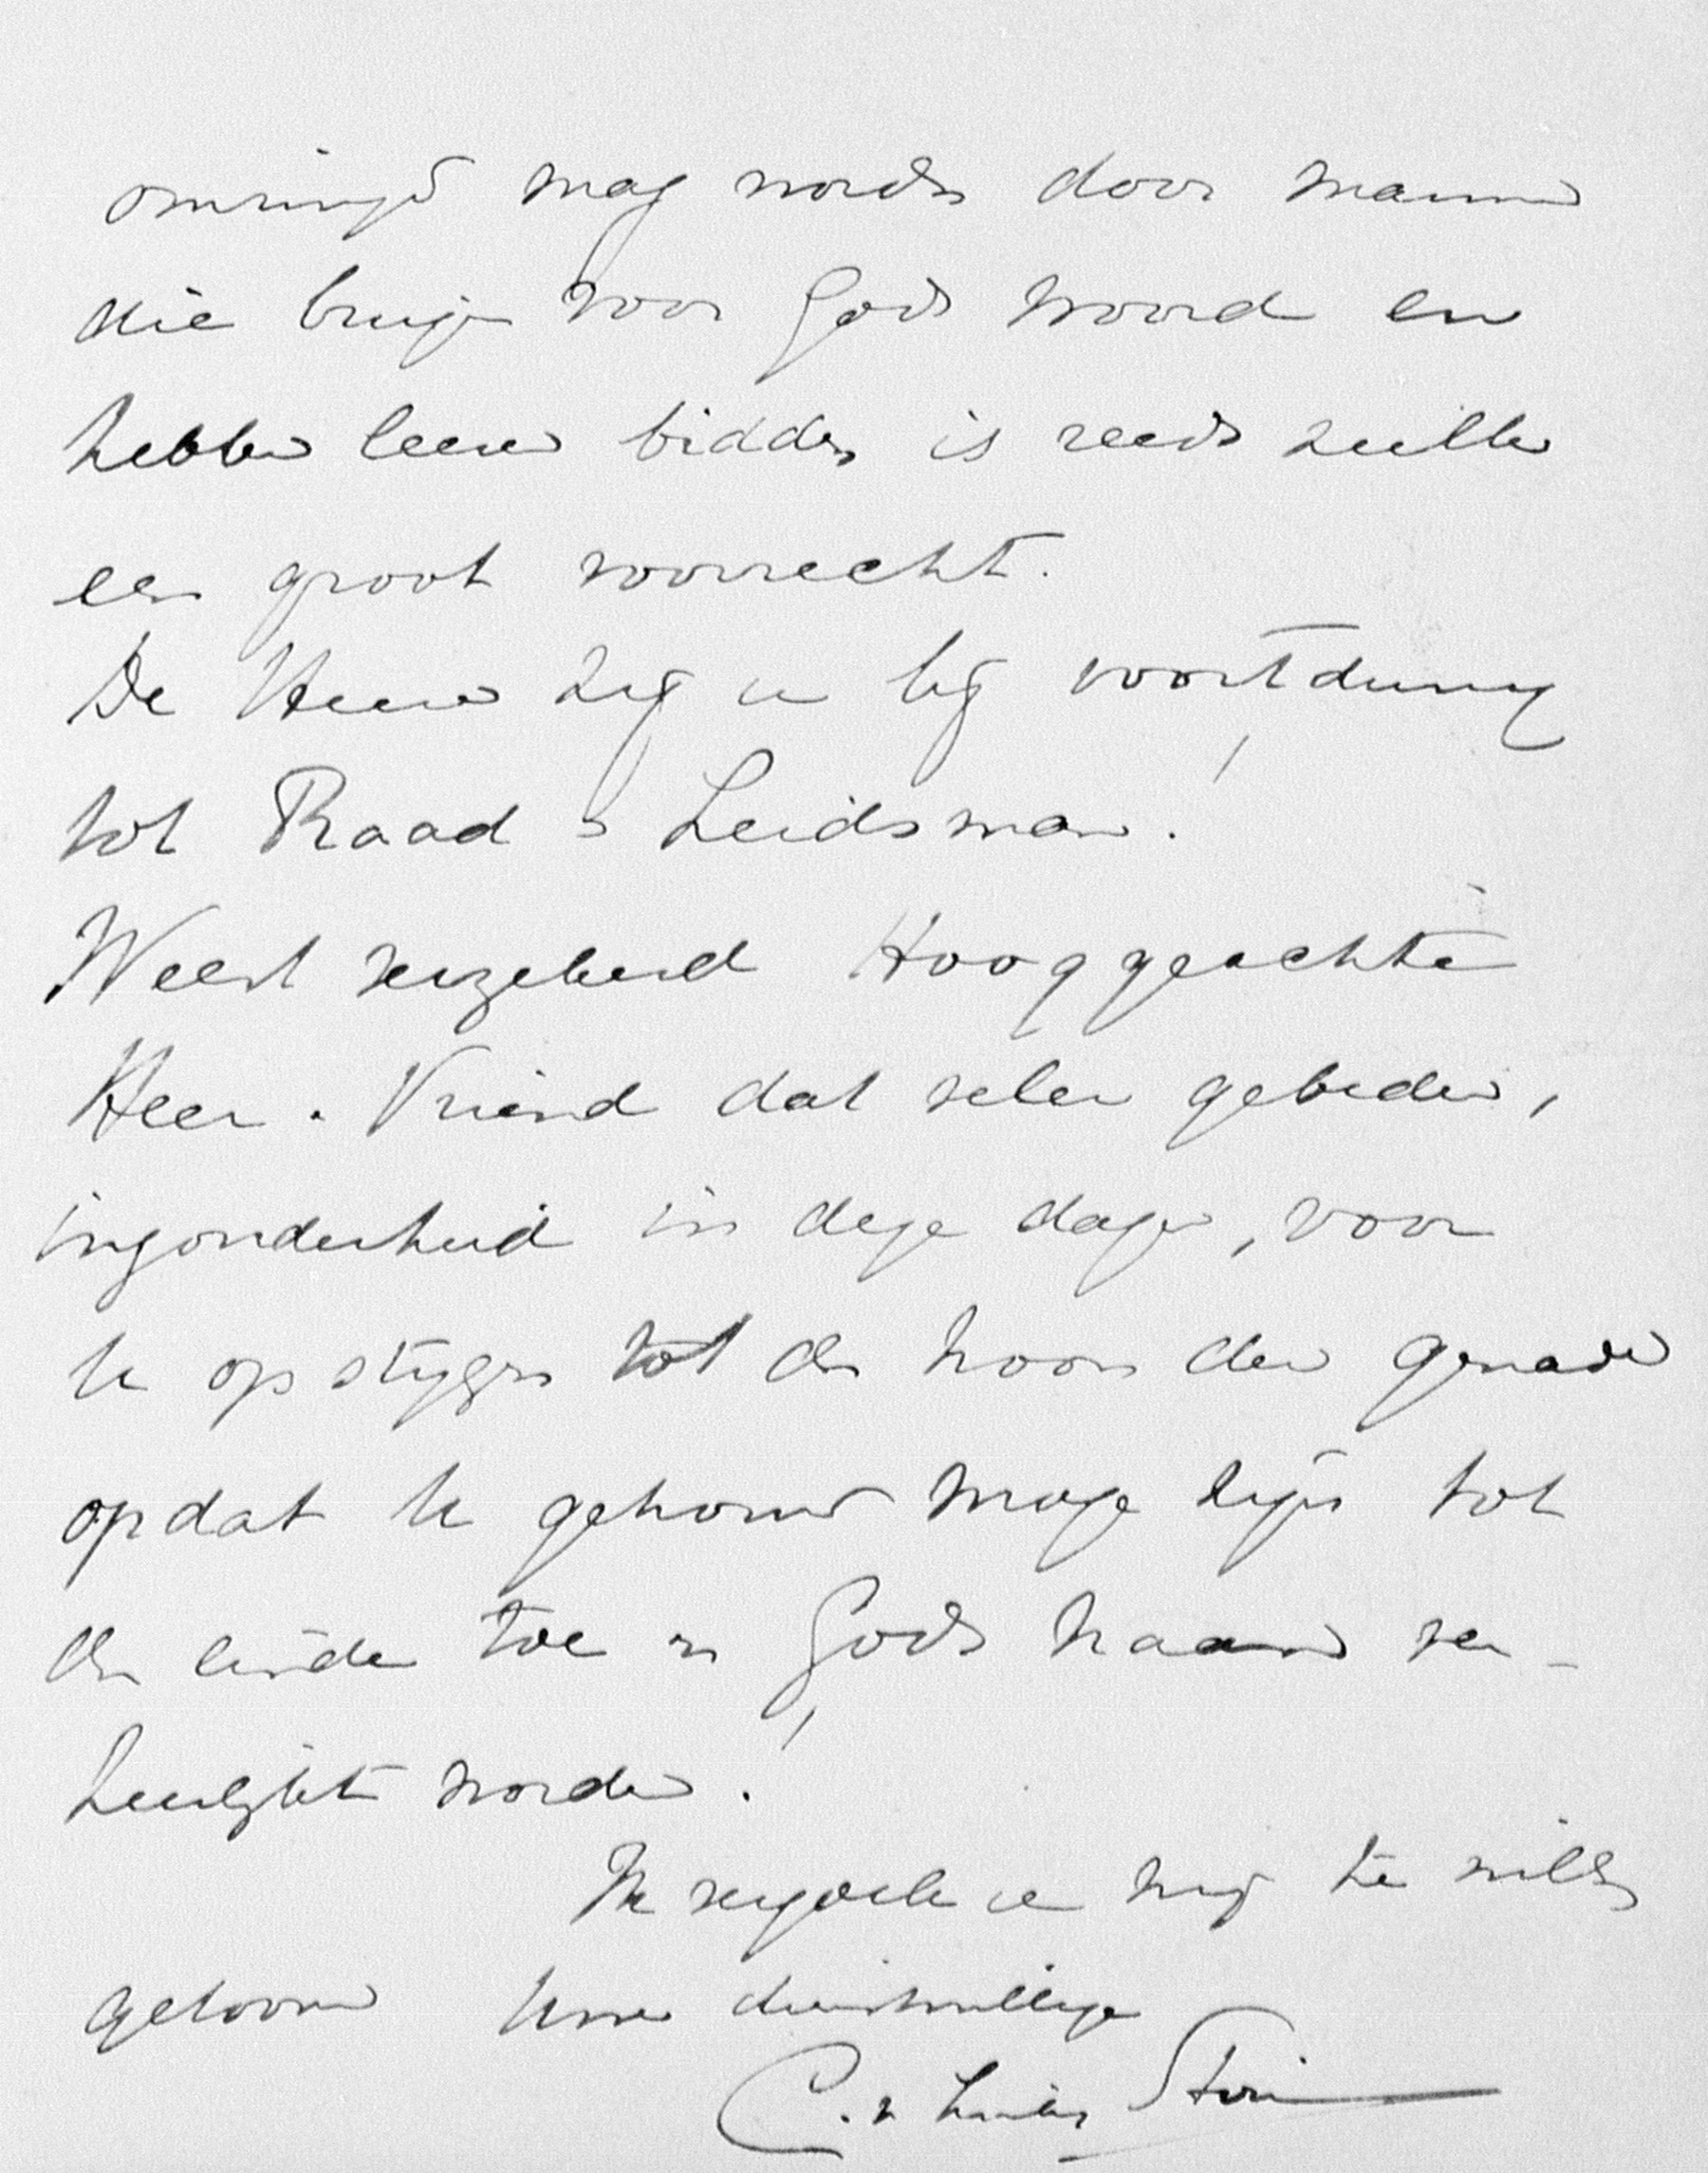 omringd mag worden door mannen
die buigen voor Gods woord en
hebben leeren bidden is reeds zulk
een groot voorrecht.
De Heere zij u bij voortduring
tot Raad & Leidsman!
Weest verzekerd Hooggeachte
Heer & Vriend dat velen gebeden,
inzonderheid in deze dagen, voor
U opstijgen tot den troon der genade
opdat U getrouw moge zijn tot
den einde toe en Gods naam ver-
heerlijkt worden!
Ik verzoek u mij te willen
gelooven Uwe dienstwillige
C. v